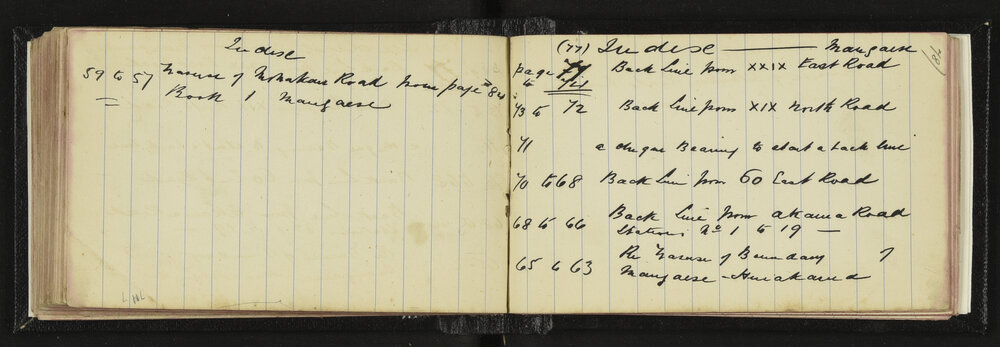 Index
59 to 57 Traverse of Road from page # 84
Book 1 Mangaese
L HL
(77) Index — Mangaese
78
page 77 Back Line from XXIX East Road
to 74
73 to 72 Back Line from XIX North Road
71 a Bearing to start a back line
70 to 68 Back Line from 60 East Road
68 to 66 Back Line from akama Road
Stations No 1 to 19 —
65 to 63 Re Traverse of Boundary
Mangaese -